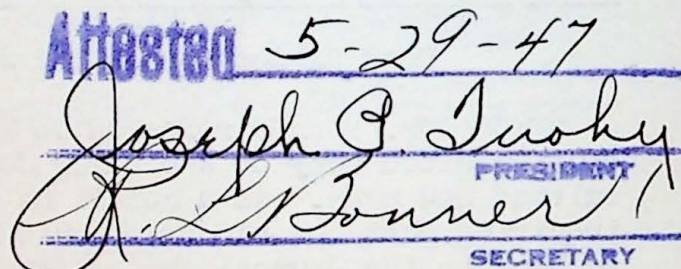 Attested 5-29-47
Joseph B. Tuohy
PRESIDENT
R. L. Bonner
SECRETARY